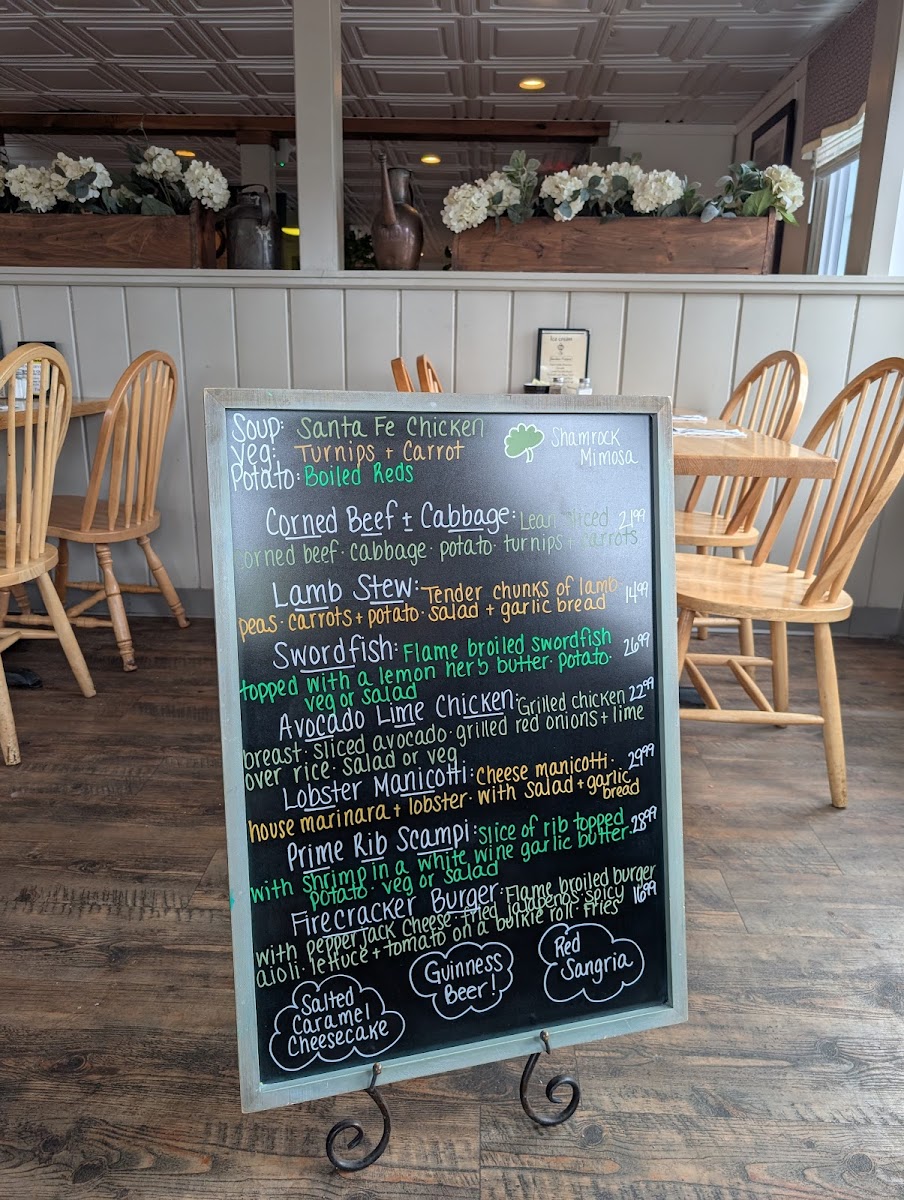 Soup: Santa Fe Chicken
Veg: Turnips + Carrot
Potato: Boiled Reds
Shamrock
Mimosa
Corned Beef + Cabbage: Lean sliced 21.99
corned beef · cabbage · potato · turnips + carrots
Lamb Stew: Tender chunks of lamb · 14.99
peas · carrots + potato · salad + garlic bread
Swordfish: Flame broiled swordfish 26.99
topped with a lemon herb butter · potato ·
veg or salad
Avocado Lime Chicken: Grilled chicken 22.99
breast · sliced avocado · grilled red onions + lime
over rice · salad or veg
Lobster Manicotti: Cheese manicotti · 29.99
house marinara + lobster · with salad + garlic
bread
Prime Rib Scampi: Slice of rib topped 28.99
with shrimp in a white wine garlic butter ·
potato · veg or salad
Firecracker Burger: Flame broiled burger 16.99
with pepperjack cheese · fried jalapenos · spicy
aioli · lettuce + tomato on a bulkie roll · fries
Salted
Caramel
Cheesecake
Guinness
Beer!
Red
Sangria
Ice cream